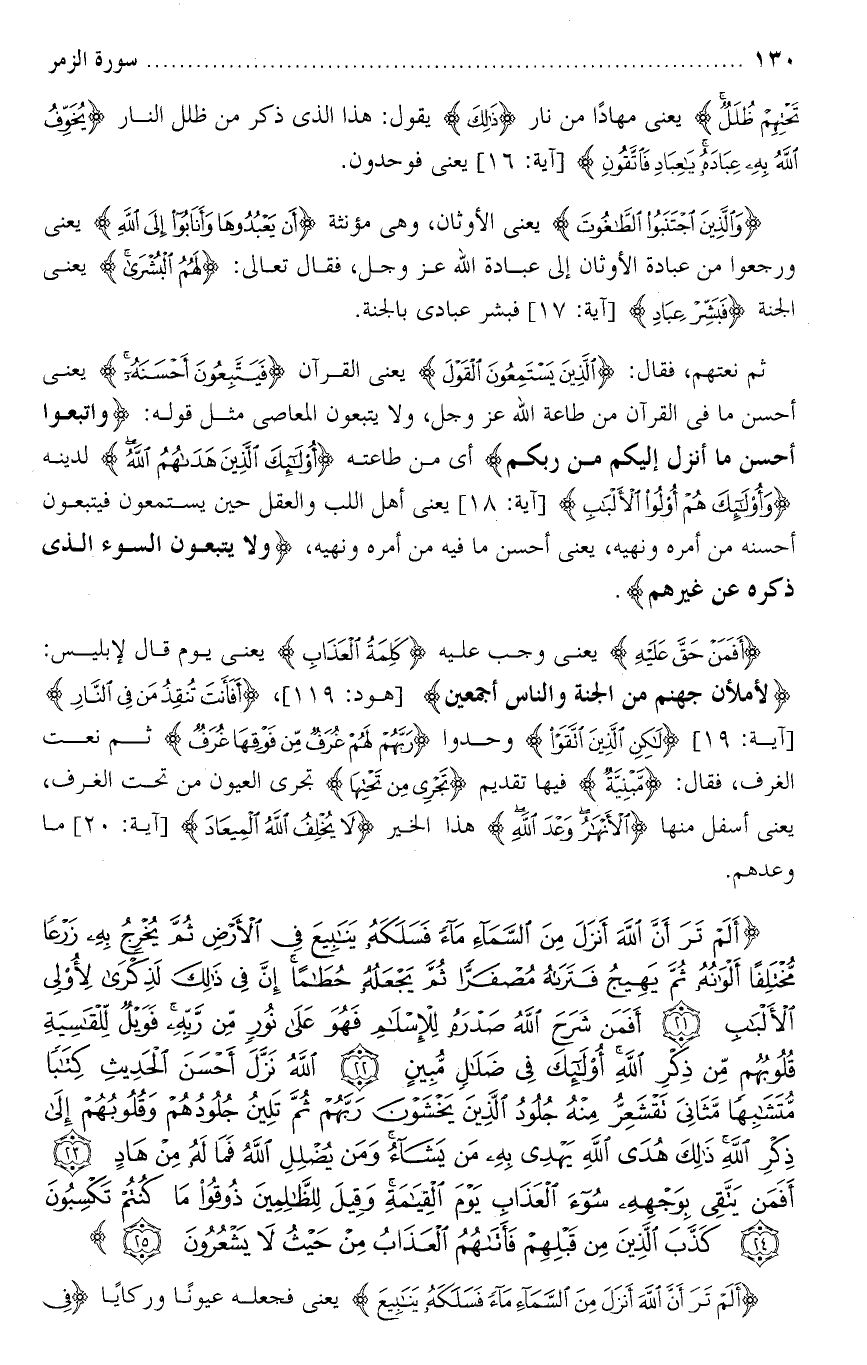 ١٣٠ ........................................ سورة الزمر
تَحْتِهِمْ ظُلَلٌ﴾ يعنى مهادًا من نار ﴿ذَٰلِكَ﴾ يقول: هذا الذى ذكر من ظلل النار ﴿يُخَوِّفُ
ٱللَّهُ بِهِۦ عِبَادَهُۥۚ يَـٰعِبَادِ فَٱتَّقُونِ﴾ [آية: ١٦] يعنى فوحدون.
﴿وَٱلَّذِينَ ٱجْتَنَبُوا۟ ٱلطَّـٰغُوتَ﴾ يعنى الأوثان، وهى مؤنثة ﴿أَن يَعْبُدُوهَا وَأَنَابُوٓا۟ إِلَى ٱللَّهِ﴾ يعنى
ورجعوا من عبادة الأوثان إلى عبادة الله عز وجل، فقال تعالى: ﴿لَهُمُ ٱلْبُشْرَىٰۚ﴾ يعنى
الجنة ﴿فَبَشِّرْ عِبَادِ﴾ [آية: ١٧] فبشر عبادى بالجنة.
ثم نعتهم، فقال: ﴿ٱلَّذِينَ يَسْتَمِعُونَ ٱلْقَوْلَ﴾ يعنى القرآن ﴿فَيَتَّبِعُونَ أَحْسَنَهُۥٓۚ﴾ يعنى
أحسن ما فى القرآن من طاعة الله عز وجل، ولا يتبعون المعاصى مثل قوله: ﴿واتبعوا
أحسن ما أنزل إليكم من ربكم﴾ أى من طاعته ﴿أُو۟لَـٰٓئِكَ ٱلَّذِينَ هَدَىٰهُمُ ٱللَّهُۖ﴾ لدينه
﴿وَأُو۟لَـٰٓئِكَ هُمْ أُو۟لُوا۟ ٱلْأَلْبَـٰبِ﴾ [آية: ١٨] يعنى أهل اللب والعقل حين يستمعون فيتبعون
أحسنه من أمره ونهيه، يعنى أحسن ما فيه من أمره ونهيه، ﴿ولا يتبعون السوء الذى
ذكره عن غيرهم﴾.
﴿أَفَمَنْ حَقَّ عَلَيْهِ﴾ يعنى وجب عليه ﴿كَلِمَةُ ٱلْعَذَابِ﴾ يعنى يوم قال لإبليس:
﴿لأملأن جهنم من الجنة والناس أجمعين﴾ [هود: ١١٩]، ﴿أَفَأَنتَ تُنقِذُ مَن فِى ٱلنَّارِ﴾
[آية: ١٩] ﴿لَـٰكِنِ ٱلَّذِينَ ٱتَّقَوْا۟﴾ وحدوا ﴿رَبَّهُمْ لَهُمْ غُرَفٌ مِّن فَوْقِهَا غُرَفٌ﴾ ثم نعت
الغرف، فقال: ﴿مَّبْنِيَّةٌ﴾ فيها تقديم ﴿تَجْرِى مِن تَحْتِهَا﴾ تجرى العيون من تحت الغرف،
يعنى أسفل منها ﴿ٱلْأَنْهَـٰرُۖ وَعْدَ ٱللَّهِۖ﴾ هذا الخير ﴿لَا يُخْلِفُ ٱللَّهُ ٱلْمِيعَادَ﴾ [آية: ٢٠] ما
وعدهم.
﴿أَلَمْ تَرَ أَنَّ ٱللَّهَ أَنزَلَ مِنَ ٱلسَّمَآءِ مَآءً فَسَلَكَهُۥ يَنَـٰبِيعَ فِى ٱلْأَرْضِ ثُمَّ يُخْرِجُ بِهِۦ زَرْعًا
مُّخْتَلِفًا أَلْوَٰنُهُۥ ثُمَّ يَهِيجُ فَتَرَىٰهُ مُصْفَرًّا ثُمَّ يَجْعَلُهُۥ حُطَـٰمًاۚ إِنَّ فِى ذَٰلِكَ لَذِكْرَىٰ لِأُو۟لِى
ٱلْأَلْبَـٰبِ ٢١ أَفَمَن شَرَحَ ٱللَّهُ صَدْرَهُۥ لِلْإِسْلَـٰمِ فَهُوَ عَلَىٰ نُورٍ مِّن رَّبِّهِۦۚ فَوَيْلٌ لِّلْقَـٰسِيَةِ
قُلُوبُهُم مِّن ذِكْرِ ٱللَّهِۚ أُو۟لَـٰٓئِكَ فِى ضَلَـٰلٍ مُّبِينٍ ٢٢ ٱللَّهُ نَزَّلَ أَحْسَنَ ٱلْحَدِيثِ كِتَـٰبًا
مُّتَشَـٰبِهًا مَّثَانِىَ تَقْشَعِرُّ مِنْهُ جُلُودُ ٱلَّذِينَ يَخْشَوْنَ رَبَّهُمْ ثُمَّ تَلِينُ جُلُودُهُمْ وَقُلُوبُهُمْ إِلَىٰ
ذِكْرِ ٱللَّهِۚ ذَٰلِكَ هُدَى ٱللَّهِ يَهْدِى بِهِۦ مَن يَشَآءُۚ وَمَن يُضْلِلِ ٱللَّهُ فَمَا لَهُۥ مِنْ هَادٍ ٢٣
أَفَمَن يَتَّقِى بِوَجْهِهِۦ سُوٓءَ ٱلْعَذَابِ يَوْمَ ٱلْقِيَـٰمَةِۚ وَقِيلَ لِلظَّـٰلِمِينَ ذُوقُوا۟ مَا كُنتُمْ تَكْسِبُونَ
٢٤ كَذَّبَ ٱلَّذِينَ مِن قَبْلِهِمْ فَأَتَىٰهُمُ ٱلْعَذَابُ مِنْ حَيْثُ لَا يَشْعُرُونَ ٢٥﴾
﴿أَلَمْ تَرَ أَنَّ ٱللَّهَ أَنزَلَ مِنَ ٱلسَّمَآءِ مَآءً فَسَلَكَهُۥ يَنَـٰبِيعَ﴾ يعنى فجعله عيونًا وركايًا ﴿فِى